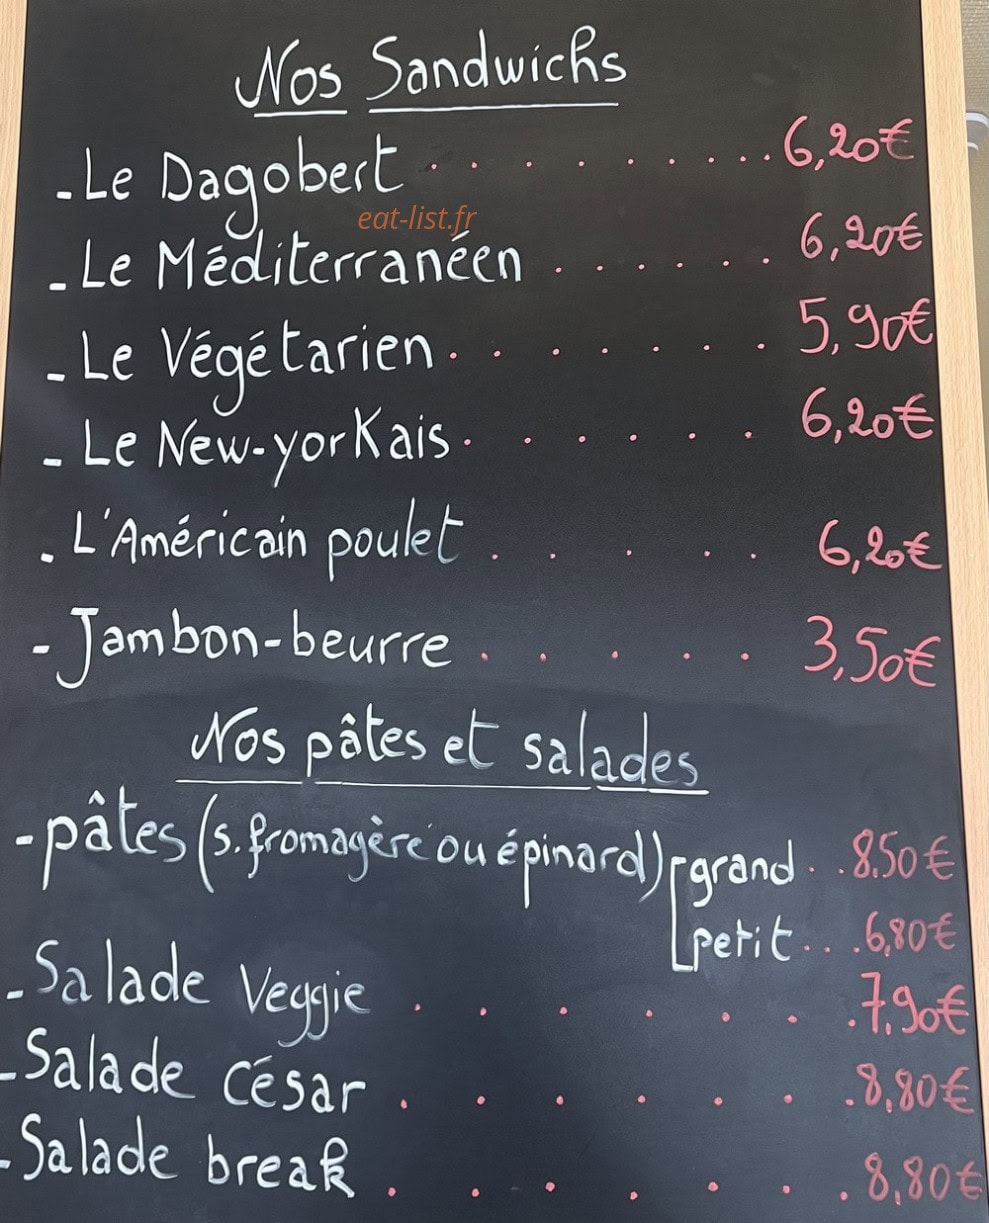 Nos Sandwichs
- Le Dagobert . . . . . . . . . . 6,20€
eat-list.fr
- Le Méditerranéen . . . . . . 6,20€
- Le Végétarien . . . . . . . 5,90€
- Le New-yorKais . . . . . . 6,20€
- L'Américain poulet . . . . . 6,20€
- Jambon-beurre . . . . . 3,50€
Nos pâtes et salades
- pâtes (s. fromagère ou épinard) grand . . 8,50€
petit . . . 6,80€
- Salade Veggie . . . . . . . 7,90€
- Salade César . . . . . . . 8,80€
- Salade break . . . . . . . 8,80€